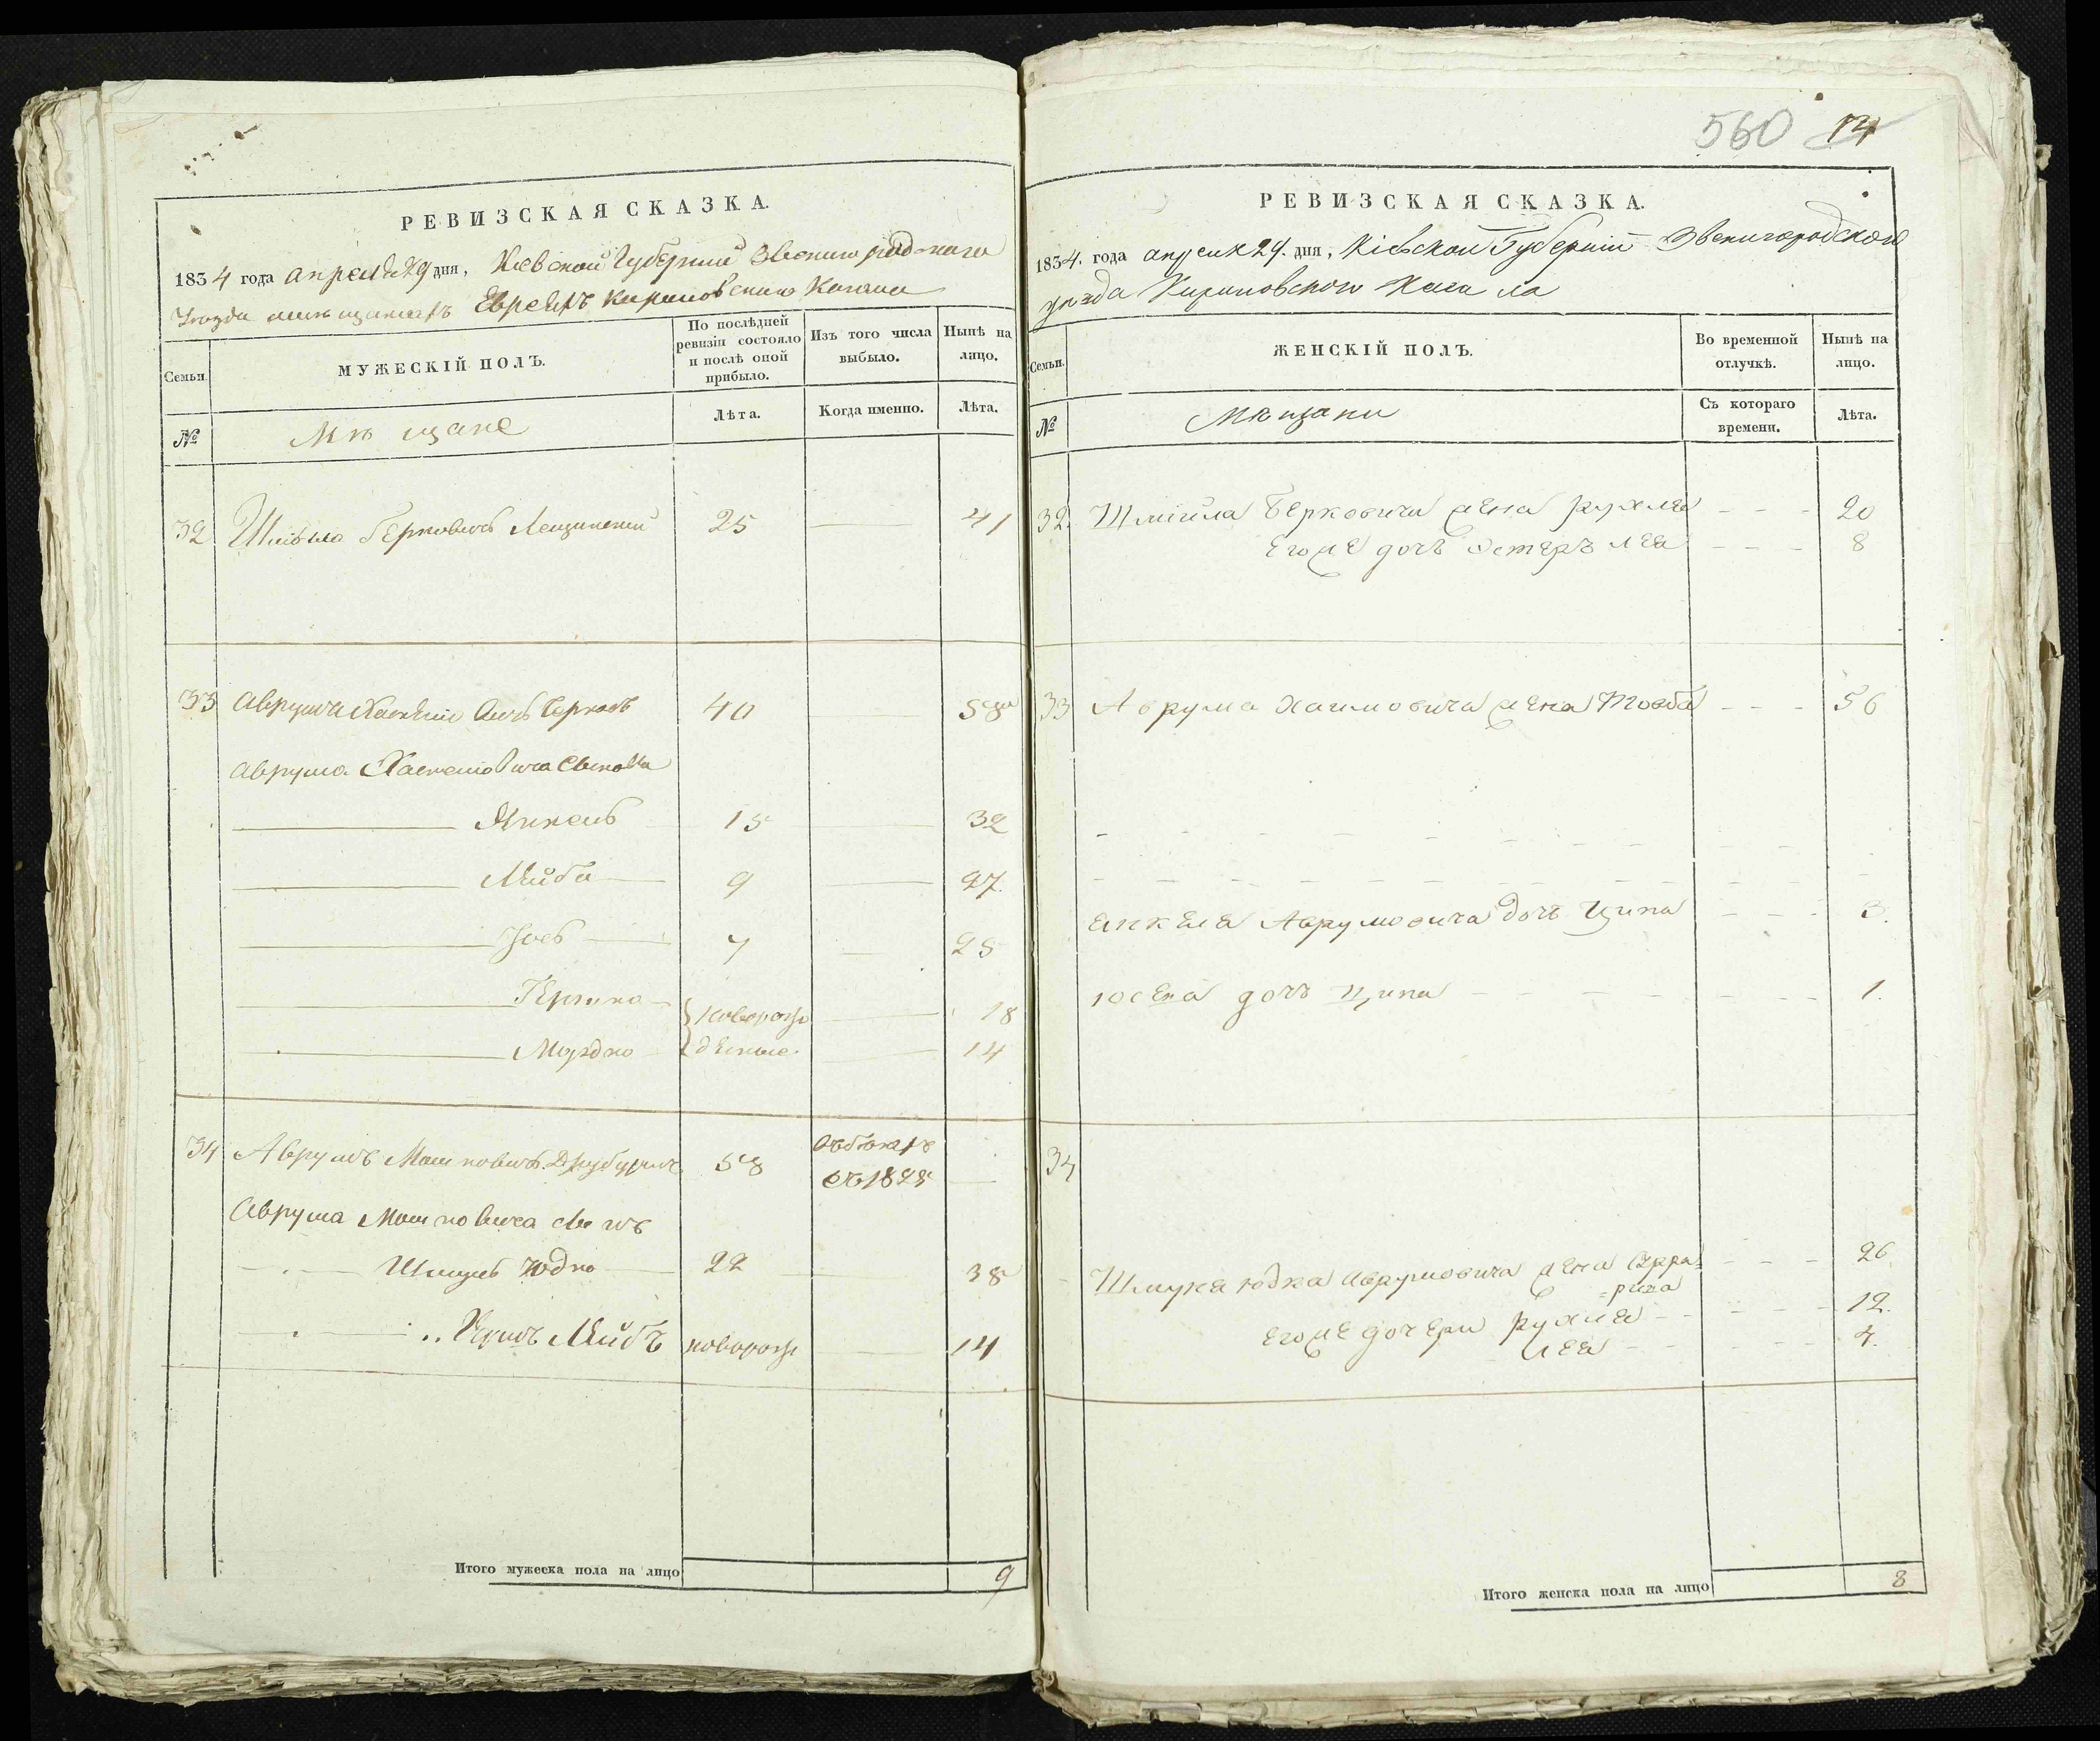 РЕВИЗСКАЯ СКАЗКА.
1834 года апреля 29 дня, Киевской Губернии Звенигородскаго
Уезда мещанамъ Евреямъ Кириловскаго Кагала
Семьи.
МУЖЕСКІЙ ПОЛЪ.
По послѣдней ревизіи состояло и послѣ оной прибыло.
Изъ того числа выбыло.
Нынѣ на лицо.
№
Мѣщане
Лѣта.
Когда именно.
Лѣта.
32 Берковичъ Лещинский 25 41
33 Аврумъ 40 58
Аврума сыновья
Янкель 15 32
Лейба 9 27.
Іосъ 7 25
Гершко новорож 18
Мордко денные. 14
34 Аврумъ Мошковичъ 58
въ бегахъ
съ 1825
Аврума Мошковича сынъ
Шмуль Юдко 22 38
Лейбъ новорож 14
Итого мужеска пола на лицо 9
560 14
РЕВИЗСКАЯ СКАЗКА.
1834. года апреля 29. дня, Кіевской Губерніи Звенигородского
уезда Кириловского Кагала
Семьи.
ЖЕНСКІЙ ПОЛЪ.
Во временной отлучкѣ.
Нынѣ на лицо.
№
Мѣщанки
Съ котораго времени.
Лѣта.
32. Шміила Берковича жена рухля 20
Егоже дочь Эстеръ леа 8
33 Аврума Хаимовича жена Товба 56
Янкеля Аврумовича дочь Ципа 3.
Іосея дочь Ципа 1.
34
Шмуля юдка Аврумовича жена 26
Егоже дочери рухля 12.
леа 4.
Итого женска пола на лицо 8